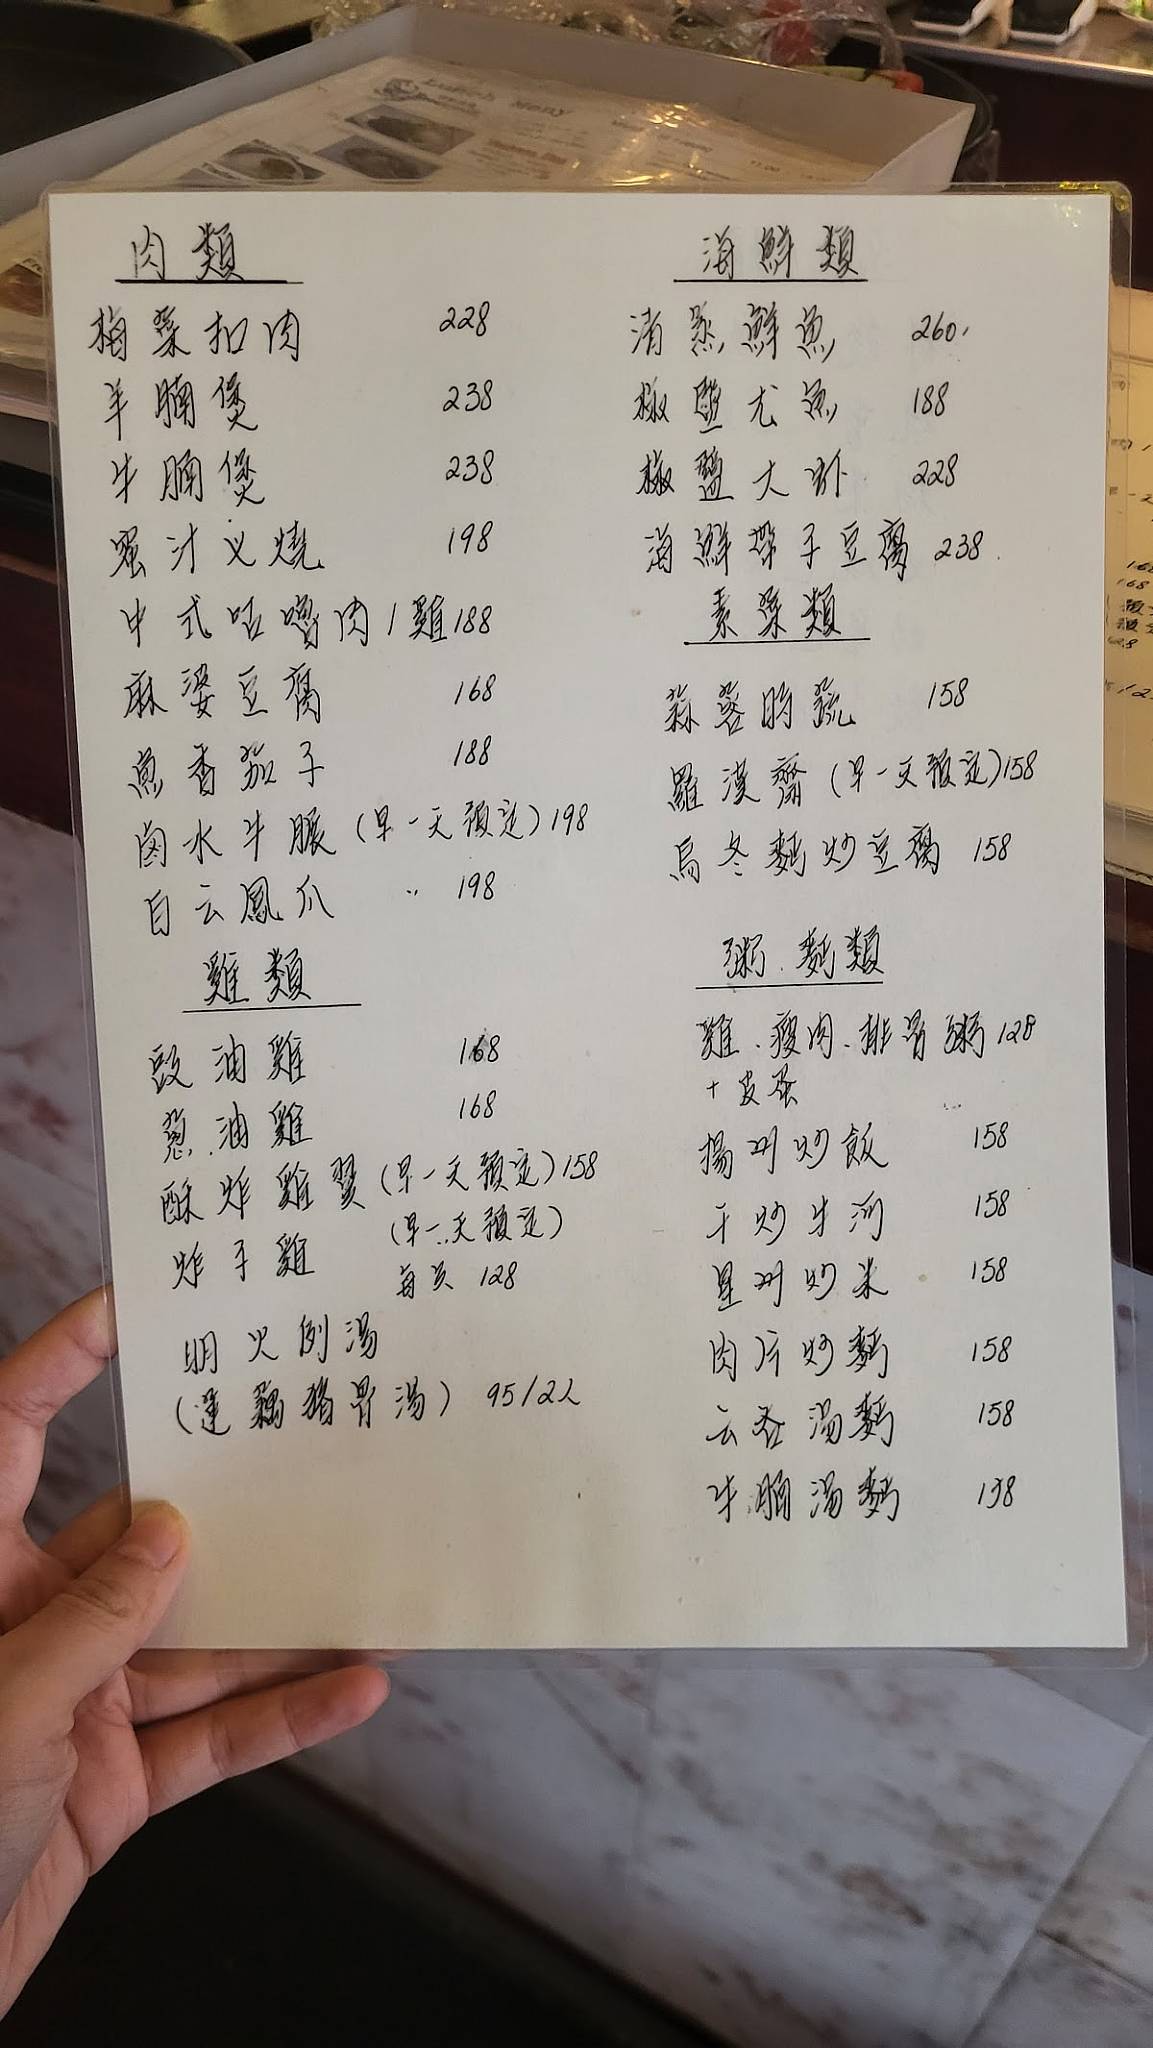 Lunch Menu
肉類
梅菜扣肉 228
羊腩煲 238
牛腩煲 238
蜜汁义燒 198
中式咕嚕肉/雞 188
麻婆豆腐 168
魚香茄子 188
鹵水牛𦟌 (早一天預定) 198
白云鳳爪 〃 198
雞類
豉油雞 168
蔥油雞 168
酥炸雞翼 (早一天預定) 158
(早一天預定)
炸子雞 每只 128
明火例湯
(蓮藕豬骨湯) 95/2人
海鮮類
清蒸鮮魚 260.
椒鹽尤魚 188
椒鹽大虾 228
海鮮帶子豆腐 238
素菜類
蒜蓉時蔬 158
羅漢齋 (早一天預定) 158
烏冬麵炒豆腐 158
粥.麵類
雞.瘦肉.排骨粥 128
+皮蛋
揚州炒飯 158
干炒牛河 158
星州炒米 158
肉片炒麵 158
云吞湯麵 158
牛腩湯麵 158